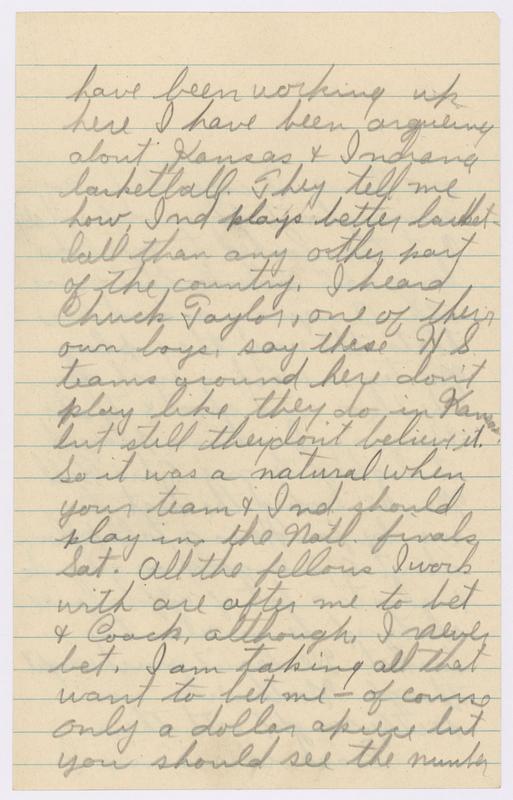 have been working up
here I have been argueing
about Kansas & Indiana
basketball. They tell me
how Ind plays better basket-
ball than any other part
of the country. I heard
Chuck Taylor, one of their
own boys, say these H S
teams around here don't
play like they do in Kansas
but still they don't believe it.
So it was a natural when
your team & Ind should
play in the Natl. finals
Sat. All the fellows I work
with are after me to bet
& Coach, although, I never
bet, I am taking all that
want to bet me – of course
only a dollar apiece but
you should see the number